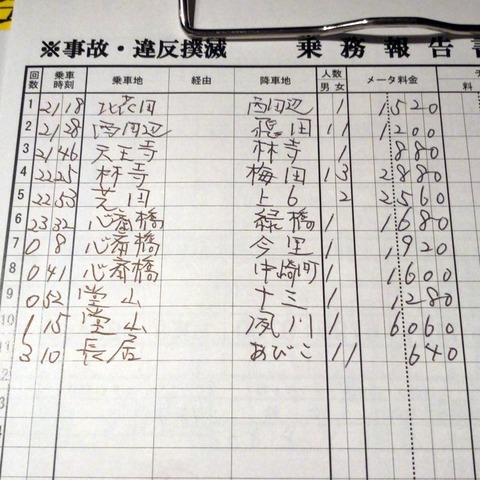 ※事故・違反撲滅 乗務報告書
回数 乗車時刻 乗車地 経由 降車地 人数 男 女 メータ料金 料
1 21 18 北花田 西田辺 1 1520
2 21 28 西田辺 飛田 1 1 1200
3 21 46 天王寺 林寺 1 880
4 22 25 林寺 梅田 1 3 2880
5 22 53 芝田 上6 2 2560
6 23 32 心斎橋 緑橋 1 1680
7 0 8 心斎橋 今里 1 1920
8 0 41 心斎橋 中崎町 1 1600
9 0 52 堂山 十三 1 1280
10 1 15 堂山 夙川 1 6060
11 3 10 長居 あびこ 1 1 640